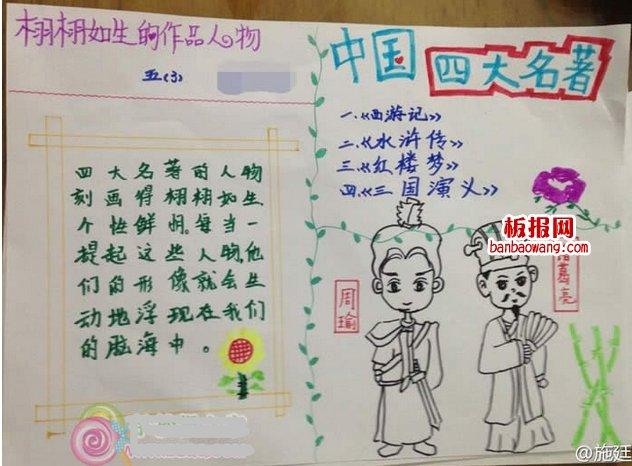 栩栩如生的作品人物
五(3)
四大名著的人物
刻画得栩栩如生
个性鲜明。每当一
提起这些人物,他
们的形像就会生
动地浮现在我们
的脑海中。
中国
四大名著
一.《西游记》
二.《水浒传》
三.《红楼梦》
四.《三国演义》
周瑜
葛亮
板报网
banbaowang.com
@施廷